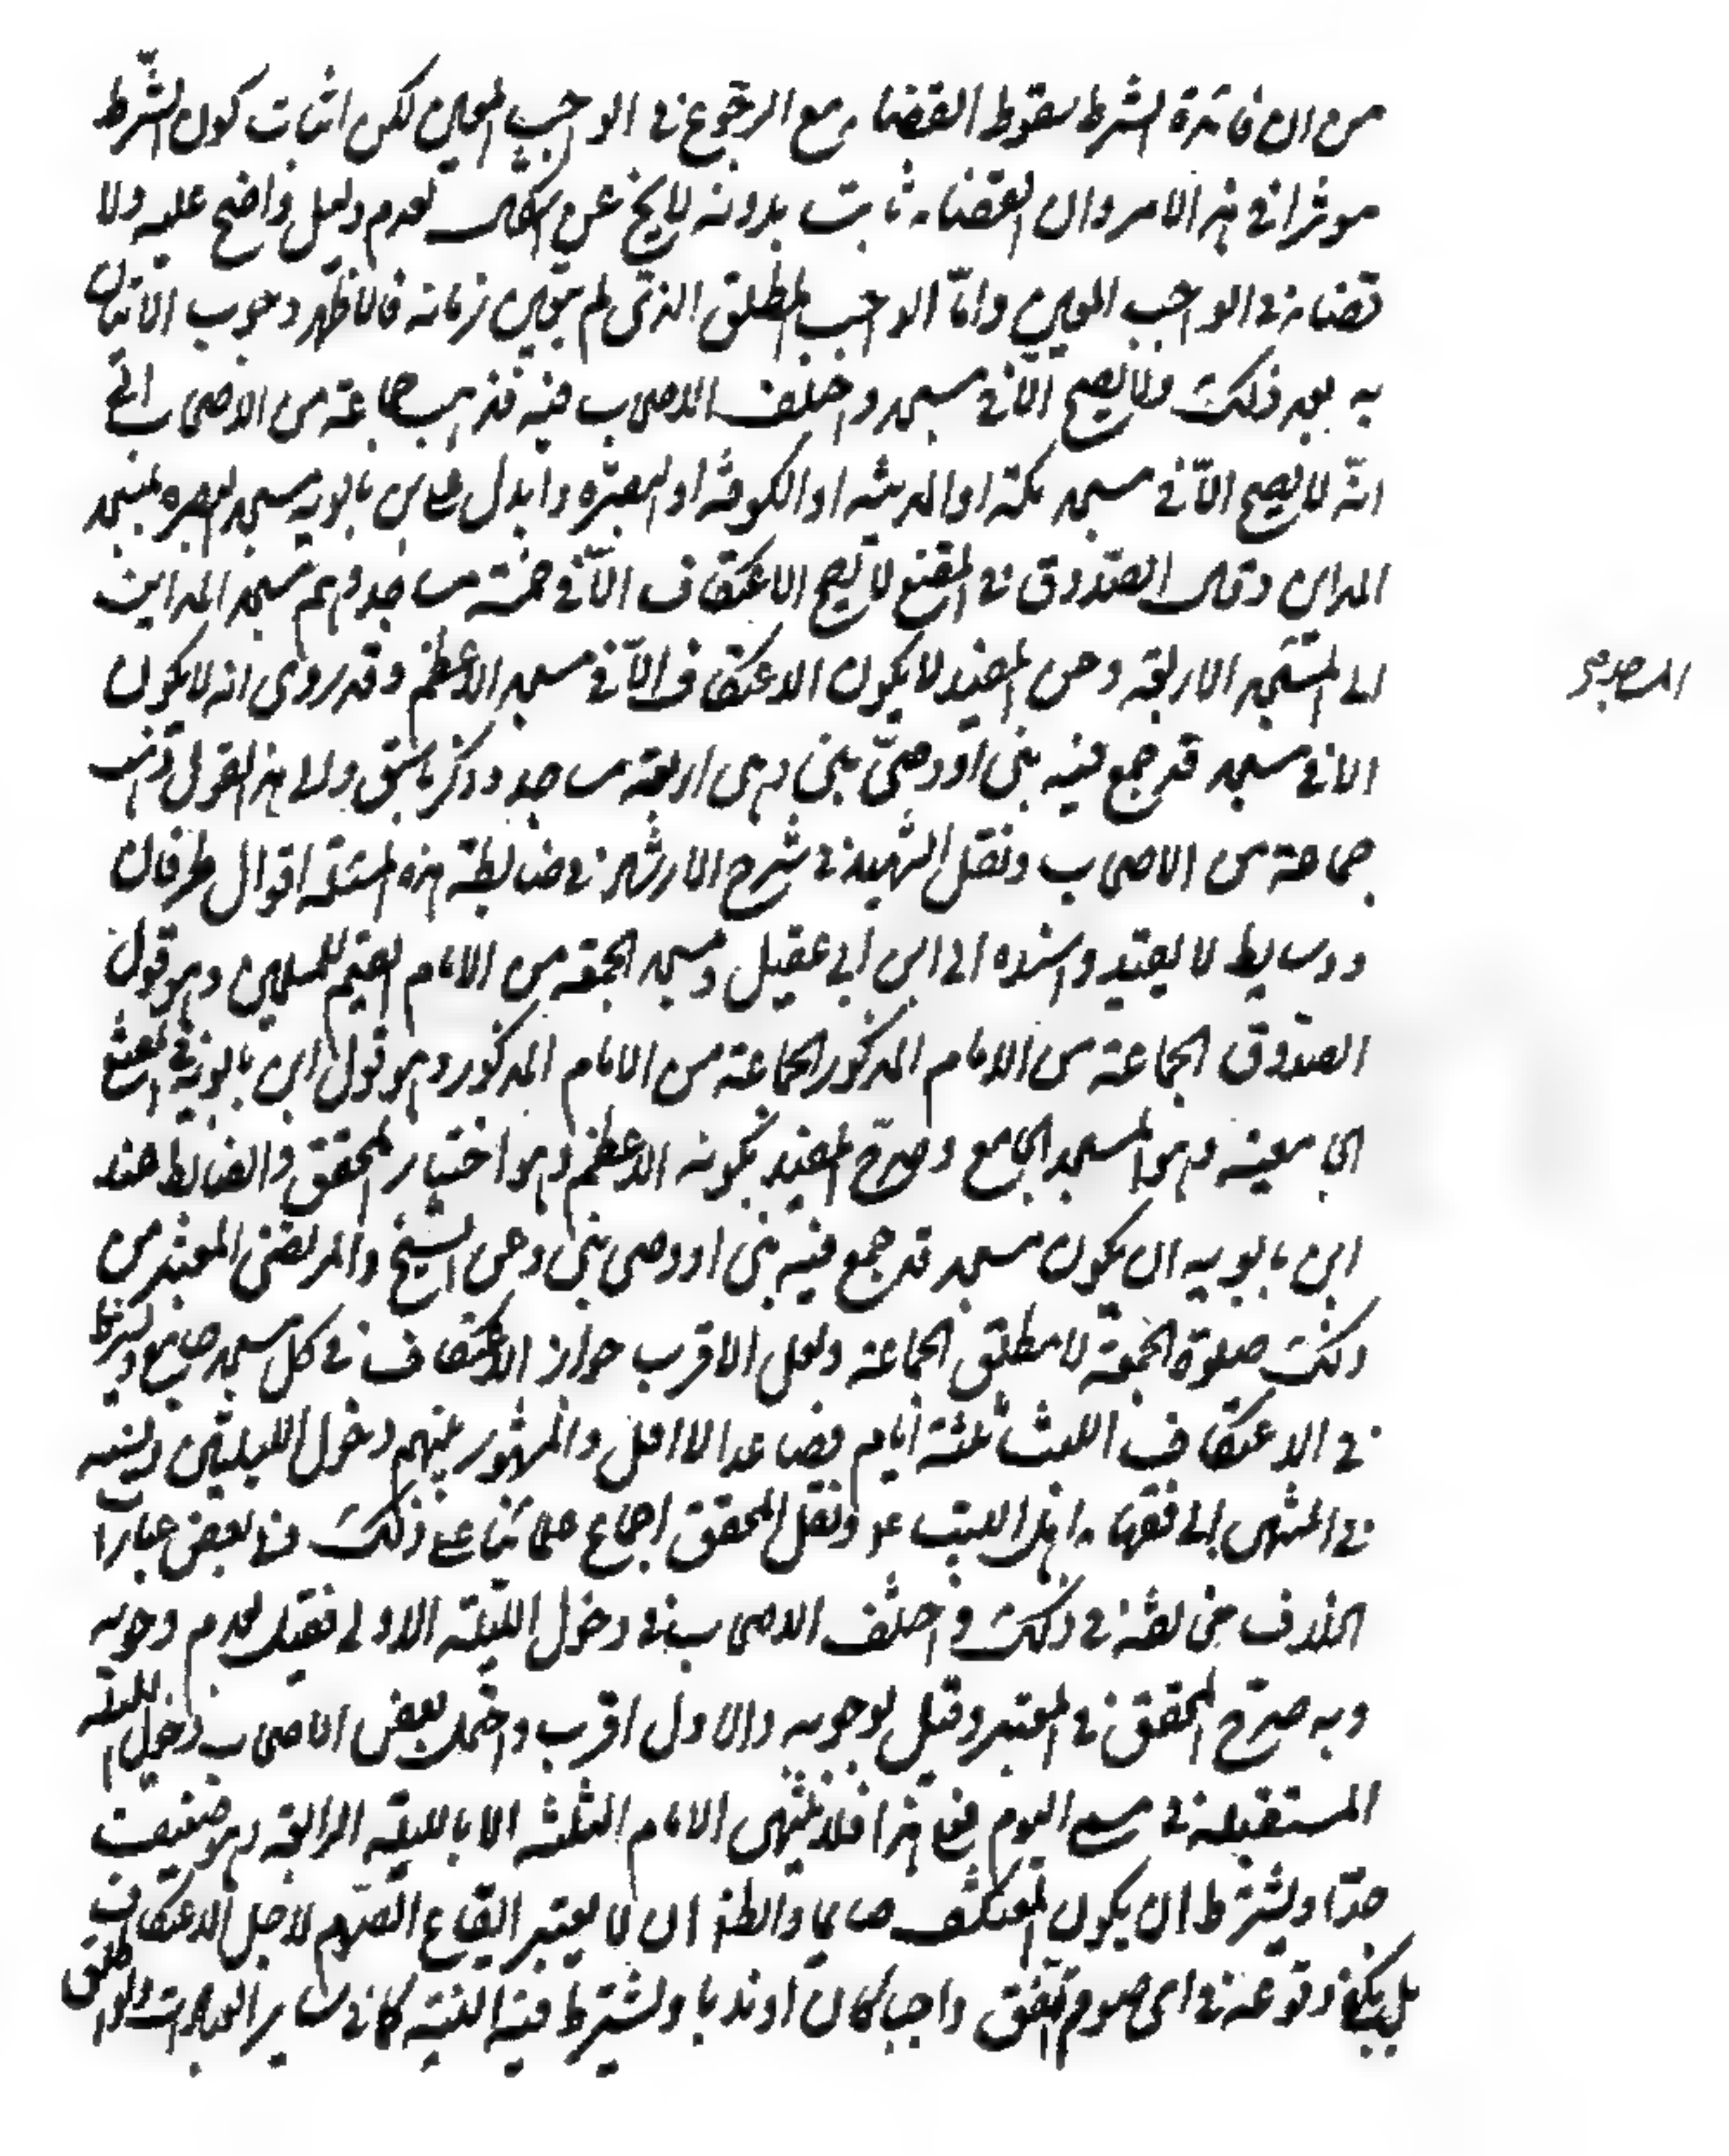 من ان فائدة الشرط سقوط القضاء مع الرجوع في الواجب المعين لكن اثبات كون الشرط
موثرا في هذا الامر وان القضاء ثابت بدونه لا يخ عن اشكال لعدم دليل واضح عليه ولا
قضاء في الواجب المعين وامّا الواجب المطلق الذي لم يتعين زمانه فالاظهر وجوب الاتيان
به بعد ذلك ولا يصح الّا في مسجد واختلف الاصحاب فيه فذهب جماعة من الاصحاب الى
انّه لا يصح الّا في مسجد مكة او المدينة او الكوفة او البصرة وابدل علي بن بابويه مسجد البصرة بمسجد
المداين وقال الصدوق في المقنع لا يصح الاعتكاف الّا في خمسة مساجد وضم مسجد المداين
الى المسجد الاربعة وعن المفيد لا يكون الاعتكاف الّا في مسجد الاعظم وقد روى انه لا يكون
المساجد
الا في مسجد قد جمع فيه نبي او وصيّ نبي وهي اربعة مساجد وذكر ما سبق والى هذا القول ذهب
جماعة من الاصحاب ونقل الشهيد في شرح الارشاد في ضابطة هذه المسئلة اقوال طرفان
ووسايط لا يعتد واسنده الى ابن ابي عقيل ومسجد الجمعة من الامام القيم للمسلمين وهو قول
الصدوق الجماعة من الامام المذكور الجماعة من الامام المذكور وهو قول ابن بابويه في المقنع
الجامعية وهو المسجد الجامع وصرّح المفيد بكونه الاعظم وهو اختيار المحقق والضابط عند
ابن بابويه ان يكون مسجد قد جمع فيه نبي او وصي نبي وعن الشيخ والمرتضى المعتبر من
ذلك صلوة الجمعة لا مطلق الجماعة ولعل الاقرب جواز الاعتكاف في كل مسجد جامع ويشترط
في الاعتكاف اللبث ثلثة ايام فصاعدا لا اقل والمشهور بينهم دخول الليلتين ونسبه
في المنتهى الى فقهاء اهل البيت ع ونقل المحقق اجماع علمائنا على ذلك وفي بعض عبارات
الخلاف مخالفة في ذلك واختلف الاصحاب في دخول الليلة الاولى فقيل بعدم وجوبه
وبه صرّح المحقق في المعتبر وقيل بوجوبه والاول اقرب واحتمل بعض الاصحاب دخول الليلة
المستقبلة في مسمى اليوم فعلى هذا فلا ينتهى الايام الثلثة الا بالليلة الرابعة وهو ضعيف
جدّا ويشترط ان يكون المعتكف صايما والظ ان لا يعتبر ايقاع الصوم لاجل الاعتكاف
بل يكفي وقوعه في اي صوم اتفق واجبا كان او ندبا ويشترط فيه النية كما في ساير العبادات والمطلق